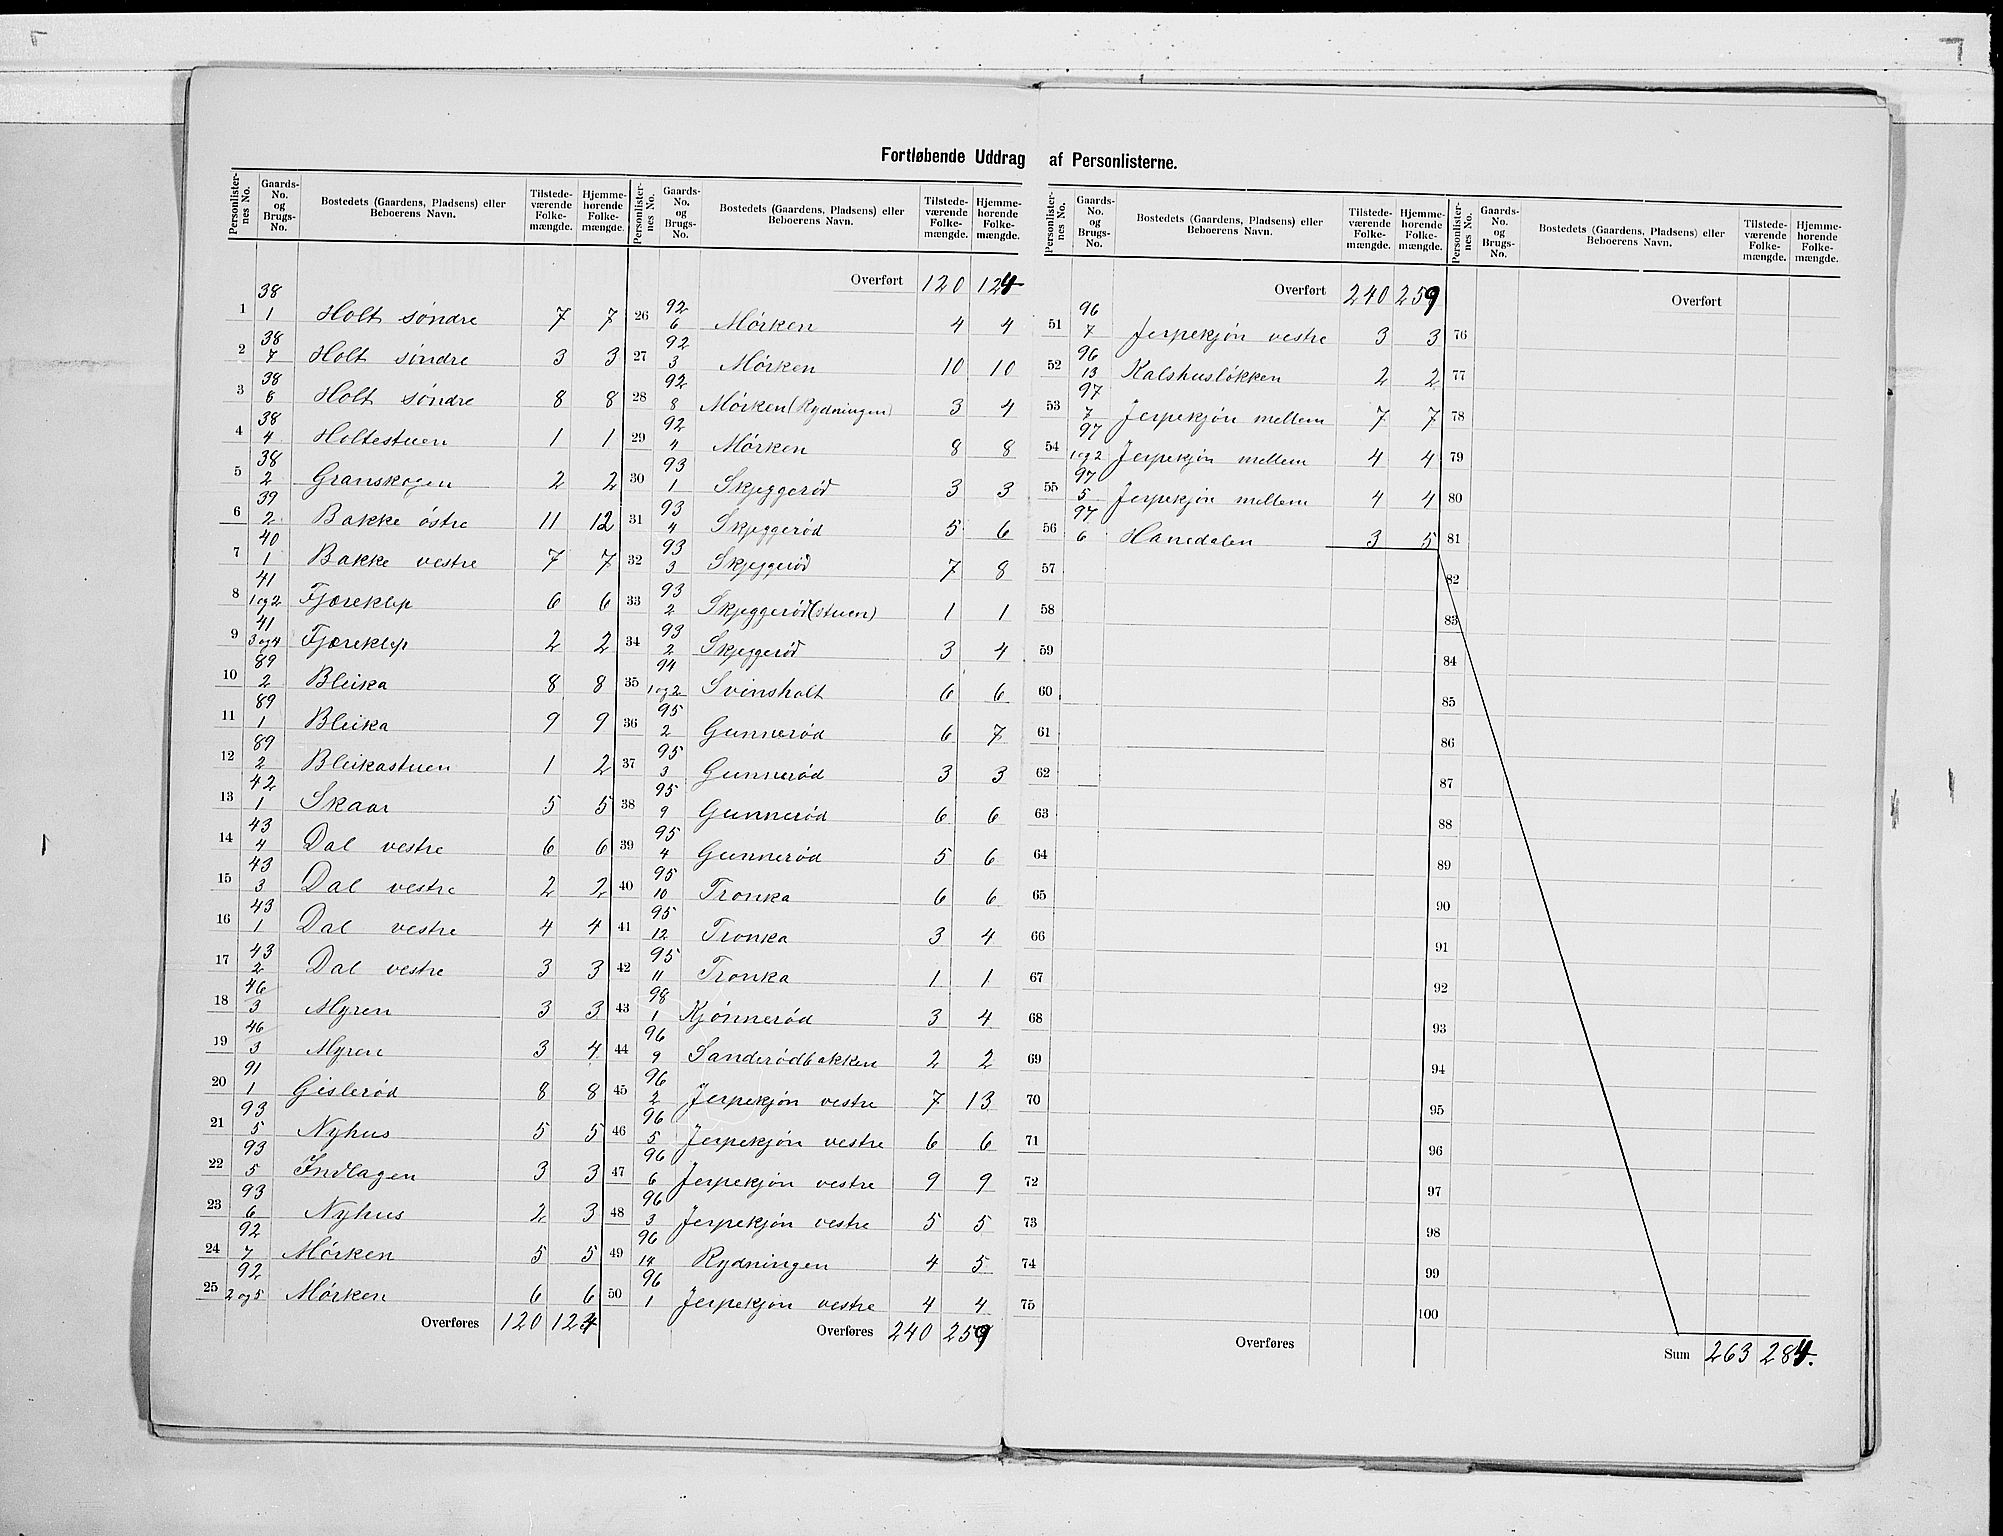 Fortløbende Uddrag af Personlisterne.
Personlister-nes No. | Gaards-No. og Brugs-No. | Bostedets (Gaardens, Pladsens) eller Beboerens Navn. | Tilstede-værende Folke-mængde. | Hjemme-hørende Folke-mængde.
1 | 38 1 | Holt søndre | 7 | 7
2 | 38 7 | Holt søndre | 3 | 3
3 | 38 8 | Holt søndre | 8 | 8
4 | 38 4 | Holtestuen | 1 | 1
5 | 38 2 | Granskogen | 2 | 2
6 | 39 2 | Bakke østre | 11 | 12
7 | 40 1 | Bakke vestre | 7 | 7
8 | 41 1 og 2 | Fjæreklep | 6 | 6
9 | 41 3 og 4 | Fjæreklep | 2 | 2
10 | 89 2 | Bleika | 8 | 8
11 | 89 1 | Bleika | 9 | 9
12 | 89 2 | Bleikastuen | 1 | 2
13 | 42 1 | Skaar | 5 | 5
14 | 43 4 | Dal vestre | 6 | 6
15 | 43 3 | Dal vestre | 2 | 2
16 | 43 1 | Dal vestre | 4 | 4
17 | 43 2 | Dal vestre | 3 | 3
18 | 46 3 | Myren | 3 | 3
19 | 46 3 | Myren | 3 | 4
20 | 91 1 | Gislerød | 8 | 8
21 | 93 5 | Nyhus | 5 | 5
22 | 93 5 | Indlagen | 3 | 3
23 | 93 6 | Nyhus | 2 | 3
24 | 92 7 | Mørken | 5 | 5
25 | 92 2 og 5 | Mørken | 6 | 6
Overføres | 120 | 124
Personlister-nes No. | Gaards-No. og Brugs-No. | Bostedets (Gaardens, Pladsens) eller Beboerens Navn. | Tilstede-værende Folke-mængde. | Hjemme-hørende Folke-mængde.
Overført | 120 | 124
26 | 92 6 | Mørken | 4 | 4
27 | 92 3 | Mørken | 10 | 10
28 | 92 8 | Mørken (Rydningen) | 3 | 4
29 | 92 4 | Mørken | 8 | 8
30 | 93 1 | Skjeggerød | 3 | 3
31 | 93 4 | Skjeggerød | 5 | 6
32 | 93 3 | Skjeggerød | 7 | 8
33 | 93 2 | Skjeggerød (stuen) | 1 | 1
34 | 93 2 | Skjeggerød | 3 | 4
35 | 94 1 og 2 | Svinsholt | 6 | 6
36 | 95 2 | Gunnerød | 6 | 7
37 | 95 3 | Gunnerød | 3 | 3
38 | 95 9 | Gunnerød | 6 | 6
39 | 95 4 | Gunnerød | 5 | 6
40 | 95 10 | Tronka | 6 | 6
41 | 95 12 | Tronka | 3 | 4
42 | 95 11 | Tronka | 1 | 1
43 | 98 1 | Kjønnerød | 3 | 4
44 | 96 9 | Sanderødbakken | 2 | 2
45 | 96 2 | Jerpekjøn vestre | 7 | 13
46 | 96 5 | Jerpekjøn vestre | 6 | 6
47 | 96 6 | Jerpekjøn vestre | 9 | 9
48 | 96 3 | Jerpekjøn vestre | 5 | 5
49 | 96 14 | Rydningen | 4 | 5
50 | 96 1 | Jerpekjøn vestre | 4 | 4
Overføres | 240 | 259
Personlister-nes No. | Gaards-No. og Brugs-No. | Bostedets (Gaardens, Pladsens) eller Beboerens Navn. | Tilstede-værende Folke-mængde. | Hjemme-hørende Folke-mængde.
Overført | 240 | 259
51 | 96 7 | Jerpekjøn vestre | 3 | 3
52 | 96 13 | Kalshusløkken | 2 | 2
53 | 97 7 | Jerpekjøn mellem | 7 | 7
54 | 97 1 og 2 | Jerpekjøn mellem | 4 | 4
55 | 97 5 | Jerpekjøn mellem | 4 | 4
56 | 97 6 | Hanedalen | 3 | 5
57
58
59
60
61
62
63
64
65
66
67
68
69
70
71
72
73
74
75
Overføres
Personlister-nes No. | Gaards-No. og Brugs-No. | Bostedets (Gaardens, Pladsens) eller Beboerens Navn. | Tilstede-værende Folke-mængde. | Hjemme-hørende Folke-mængde.
Overført
76
77
78
79
80
81
82
83
84
85
86
87
88
89
90
91
92
93
94
95
96
97
98
99
100
Sum | 263 | 284.